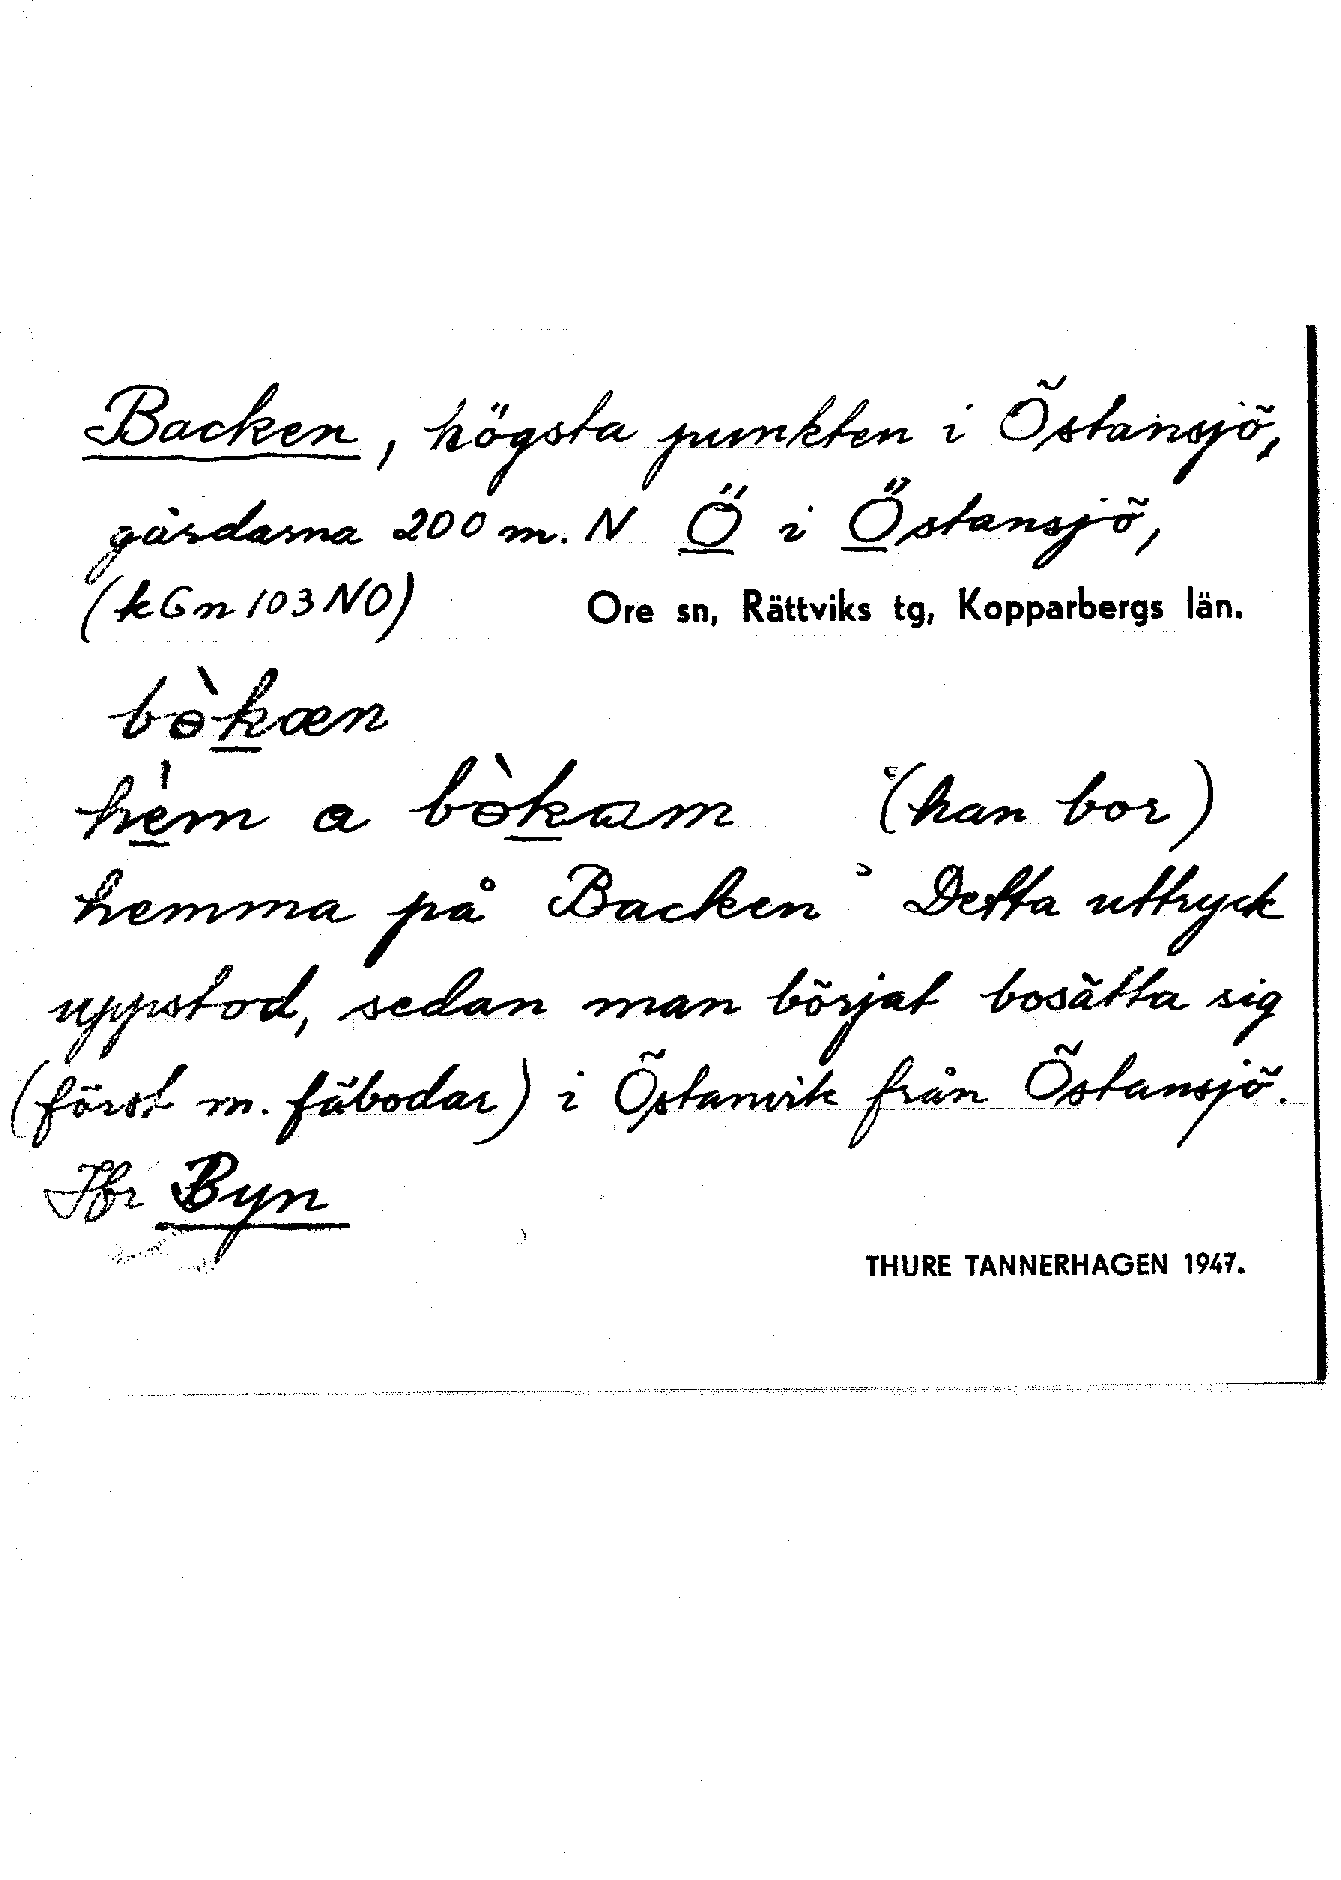 Backen, högsta punkten i Östansjö,
gårdarna 200 m. N Ö i Östansjö,
(kGn 103 NO) Ore sn, Rättviks tg, Kopparbergs län.
bɵ̀kæn
hèm a bɵ̀kam (han bor)
hemma på Backen" Detta uttryck
uppstod, sedan man börjat bosätta sig
(först m. fäbodar) i Östanvik från Östansjö.
Jfr Byn
THURE TANNERHAGEN 1947.